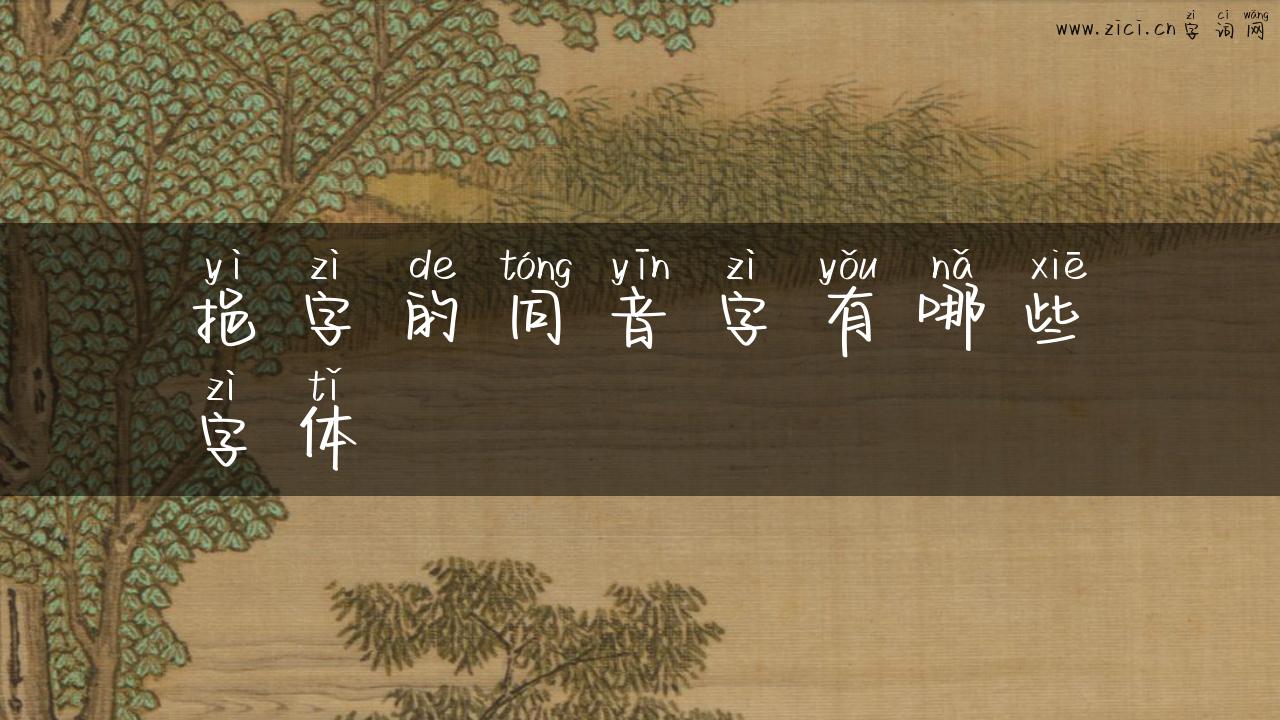 zì cí wǎng
www.zici.cn字词网
yì zì de tóng yīn zì yǒu nǎ xiē
挹字的同音字有哪些
zì tǐ
字体